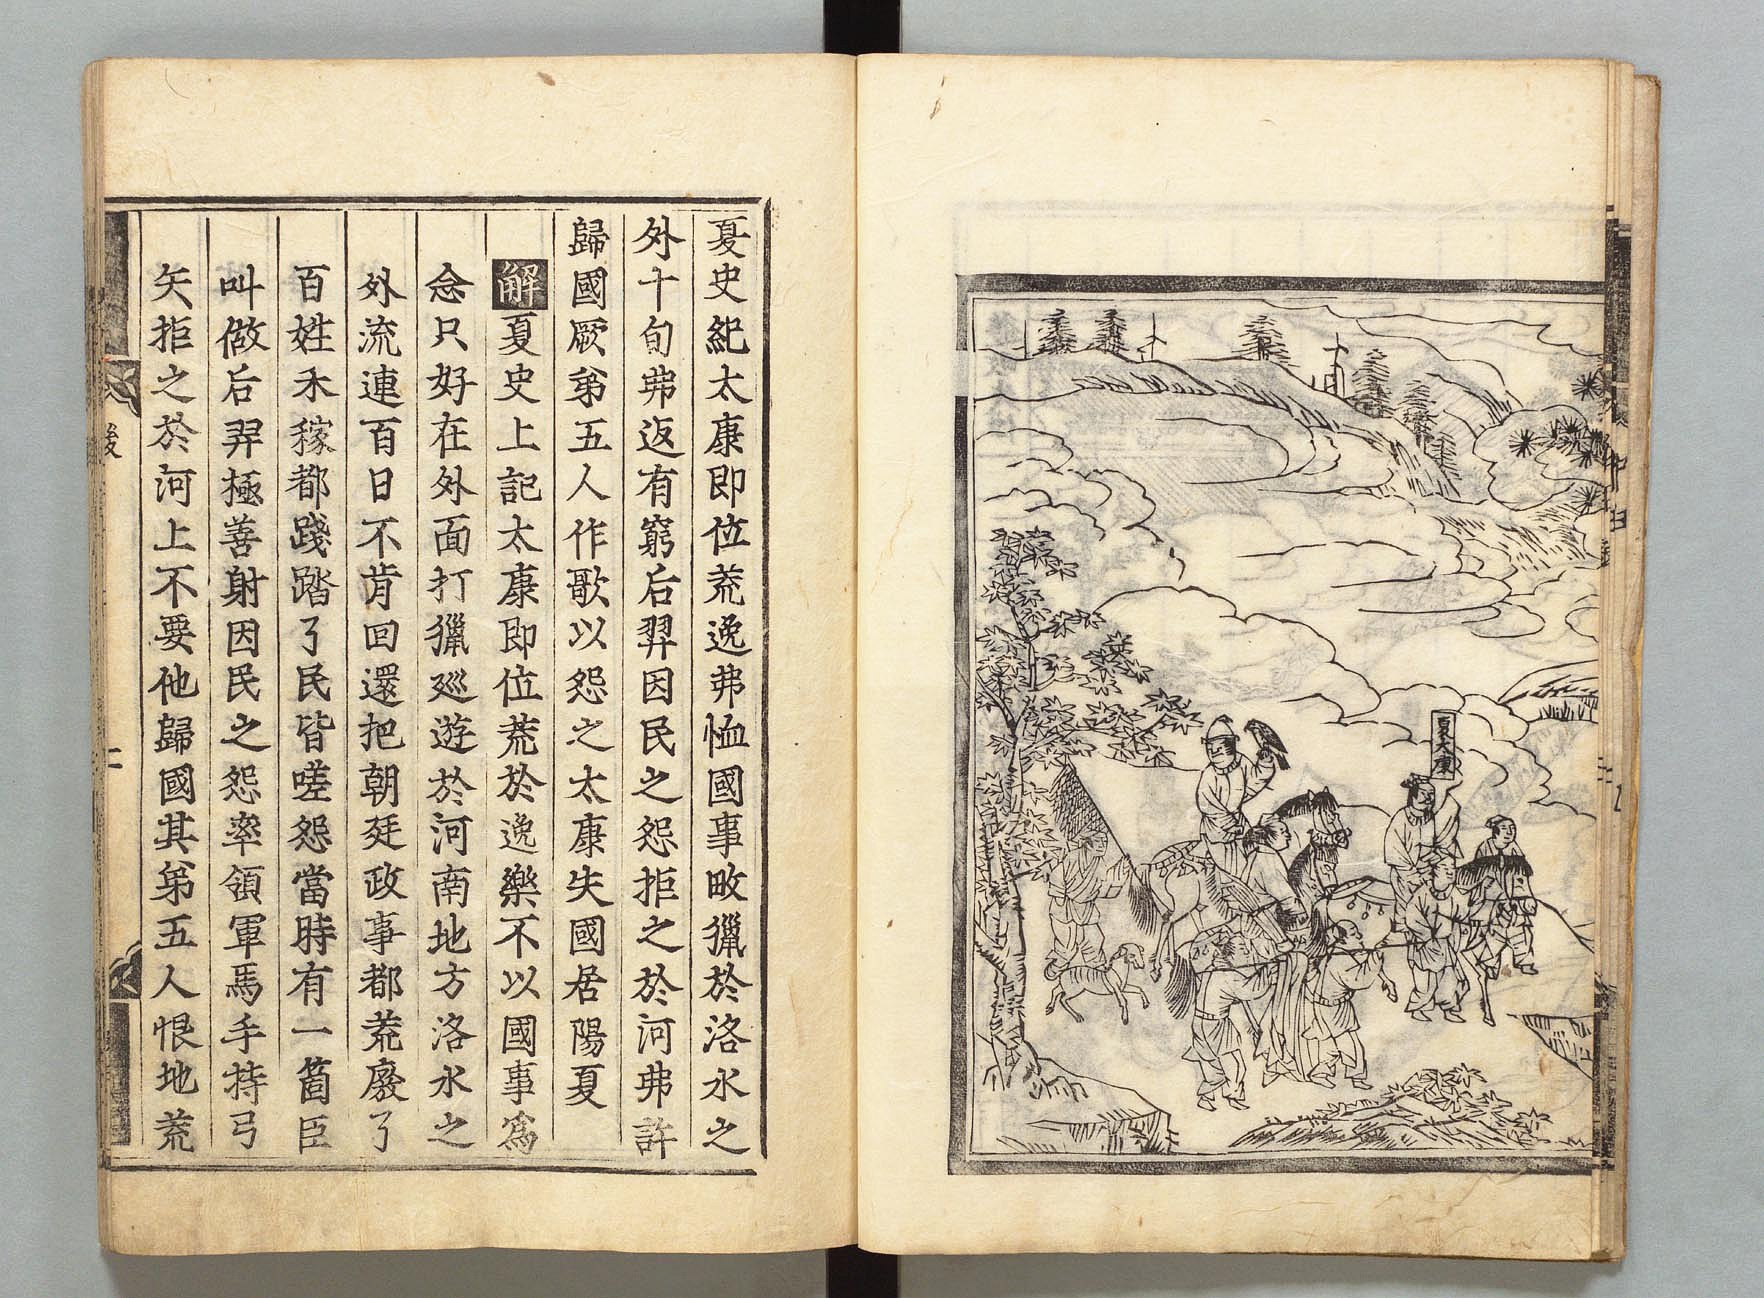 夏太康
夏史紀太康即位荒逸弗恤國事畋獵於洛水之
外十旬弗返有窮后羿因民之怨拒之於河弗許
歸國厥弟五人作歌以怨之太康失國居陽夏
解夏史上記太康即位荒於逸樂不以國事為
念只好在外面打獵廵遊於河南地方洛水之
外流連百日不肯回還把朝廷政事都荒廢了
百姓禾稼都踐踏了民皆嗟怨當時有一箇臣
叫做后羿極善射因民之怨率領軍馬手持弓
矢拒之於河上不要他歸國其弟五人恨地荒
後
二